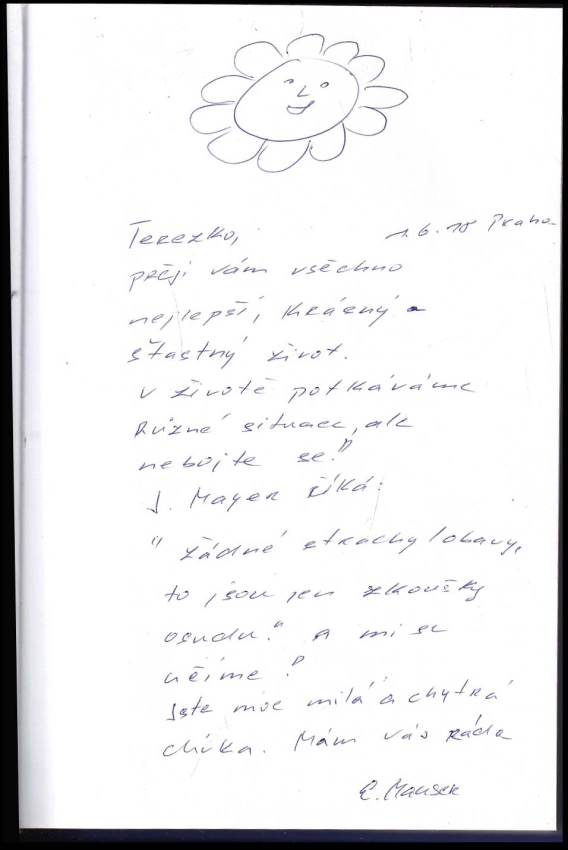 Terezko,
1.6.18 Praha
přeji vám všechno
nejlepší, krásný a
šťastný život.
V životě potkáváme
Různé situace, ale
nebojte se!"
J. Mayer říká:
" žádné strachy/obavy,
to jsou jen zkoušky
osudu." A mi se
učíme!
Jste moc milá a chytrá
dívka. Mám vás ráda
E.